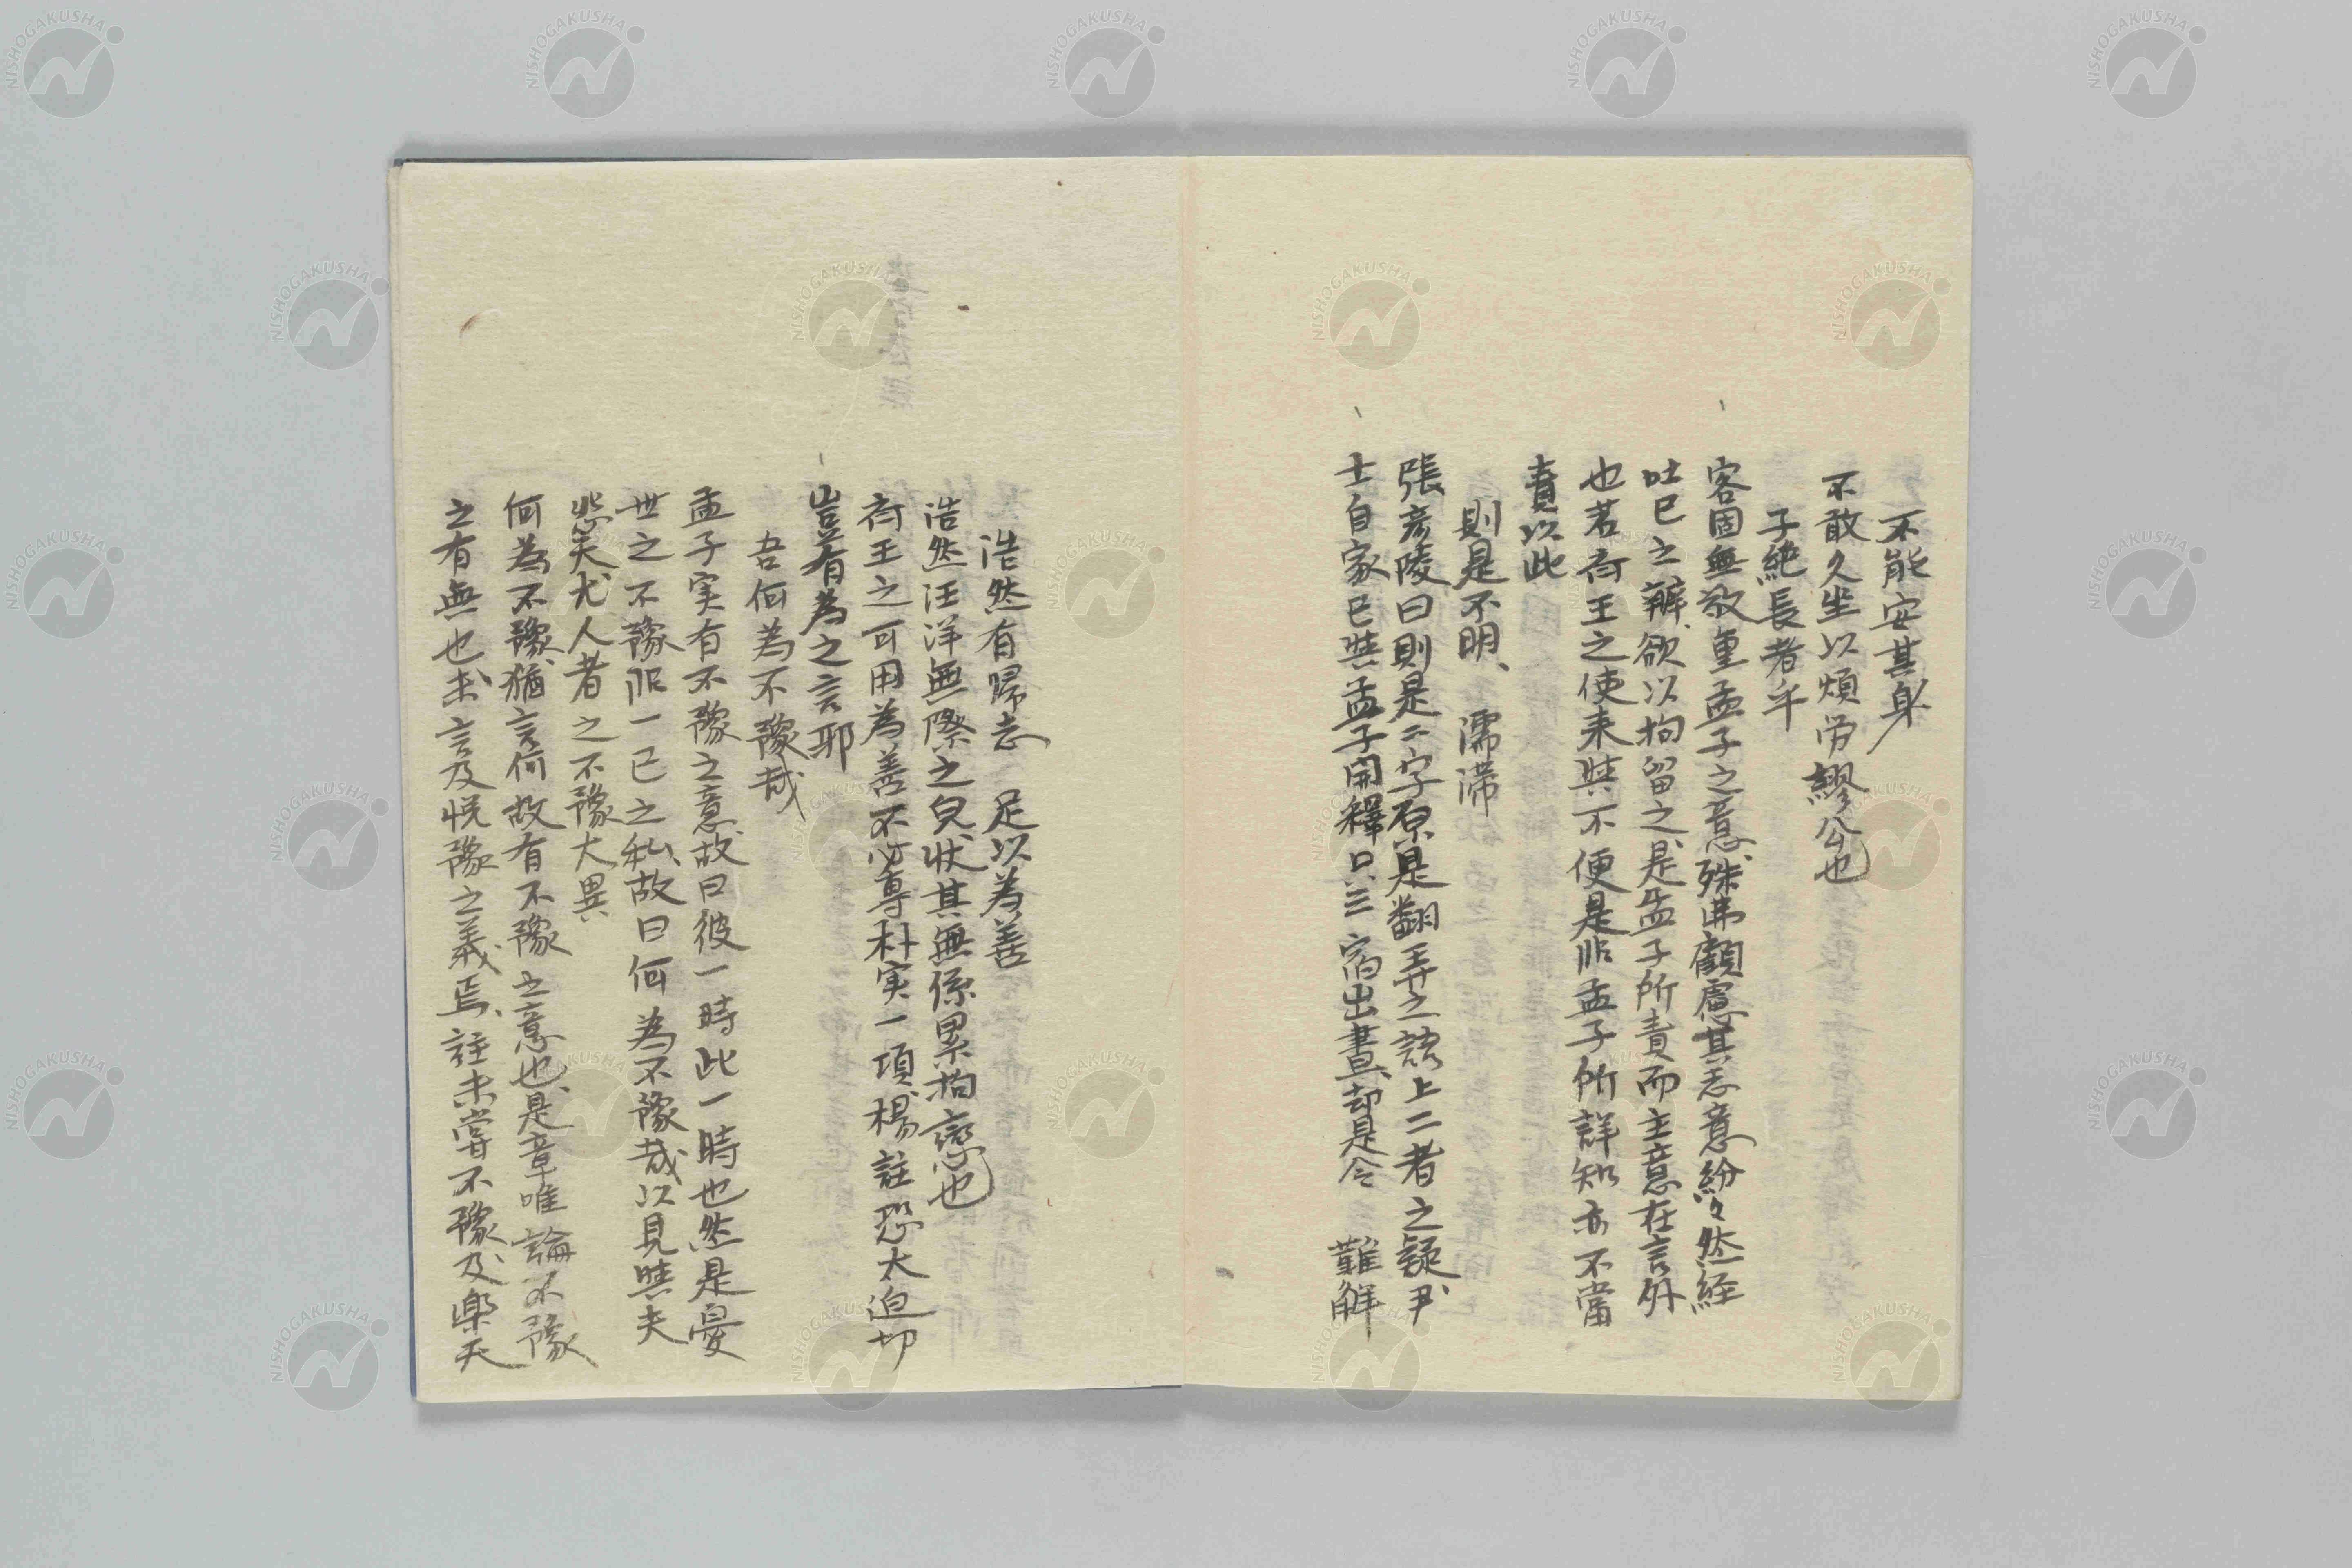 不能安其身
不敢久坐以煩労繆公也
子絶長者乎
客固無敬重孟子之意、殊弗顧慮其志意紛々然経
吐已之辯、欲以拘留之、是孟子所責而主意在言外
也若斉王之使来与不便是非孟子所詳知亦不當
責以此
則是不明、濡滞
張彦陵曰則是二字原是翻弄之語上二者之疑尹
士自家已与孟子開釋只三宿出晝、却是今難解
浩然有歸志 足以為善
浩然汪洋無際之皃状其無係累拘戀也
斉王之可用為善不必専朴実一項、楊註恐太迫切
豈有為之言邪
吾何為不豫哉
孟子実有不豫之意故曰彼一時此一時也然是憂
世之不豫非一已之私、故曰何為不豫哉、以見与夫
怨天尤人者之不豫大異
何為不豫猶言何故有不豫之意也、是章唯論不豫
之有無也、未言及悦豫之義焉、註未嘗不豫及楽天
NISHOGAKUSHA